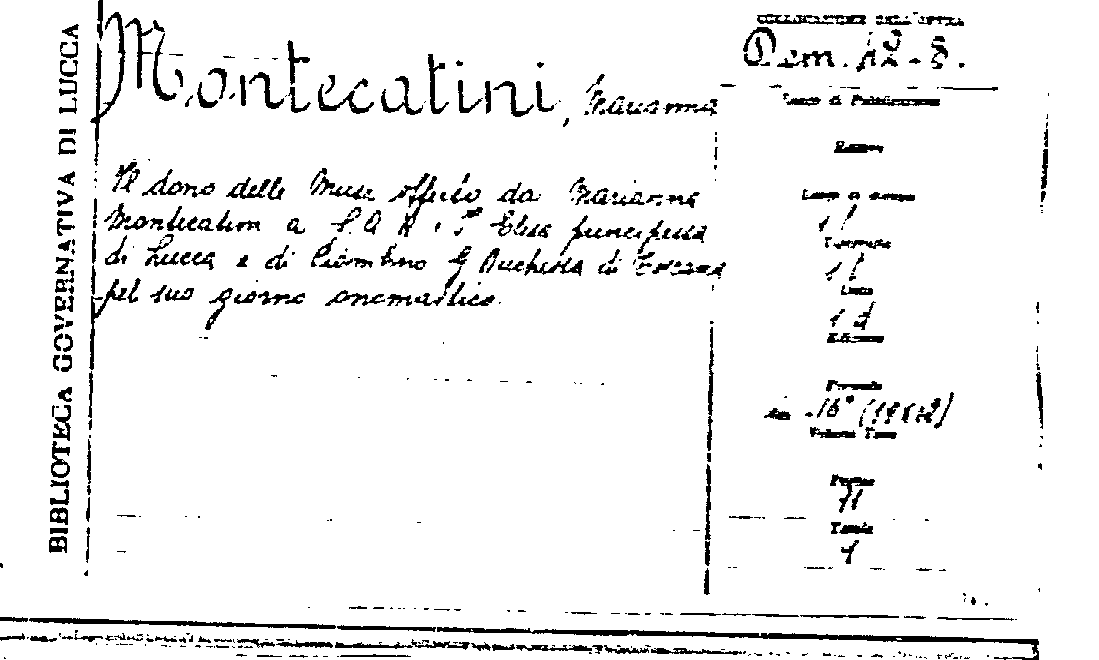 BIBLIOTECA GOVERNATIVA DI LUCCA
COLLOCAZIONE DELL'OPERA
Dem. 12-8.
Montecatini, Marianna
Il dono delle Muse offerto da Marianna
Montecatini a S. A. R. Elisa principessa
di Lucca e di Piombino G Duchessa di Toscana
pel suo giorno onomastico.
Luogo di Pubblicazione
Editore
Luogo di stampa
Tipografia
Edizione
Formato
in 16°
Volume Tomo
Pagine
11
Tavole
1